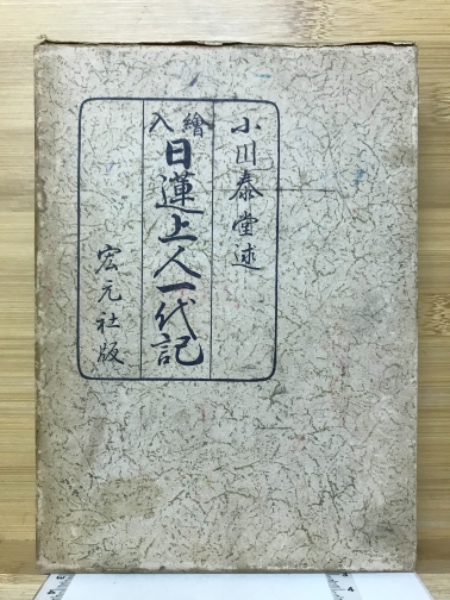 小川泰堂述
繪入
日蓮上人一代記
宏元社版